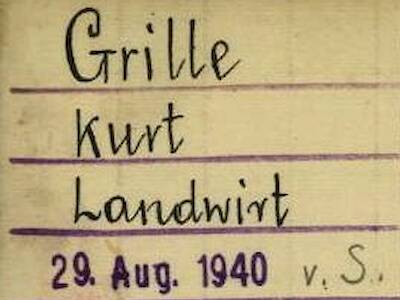 Grille
Kurt
Landwirt
29. Aug. 1940 v. S.